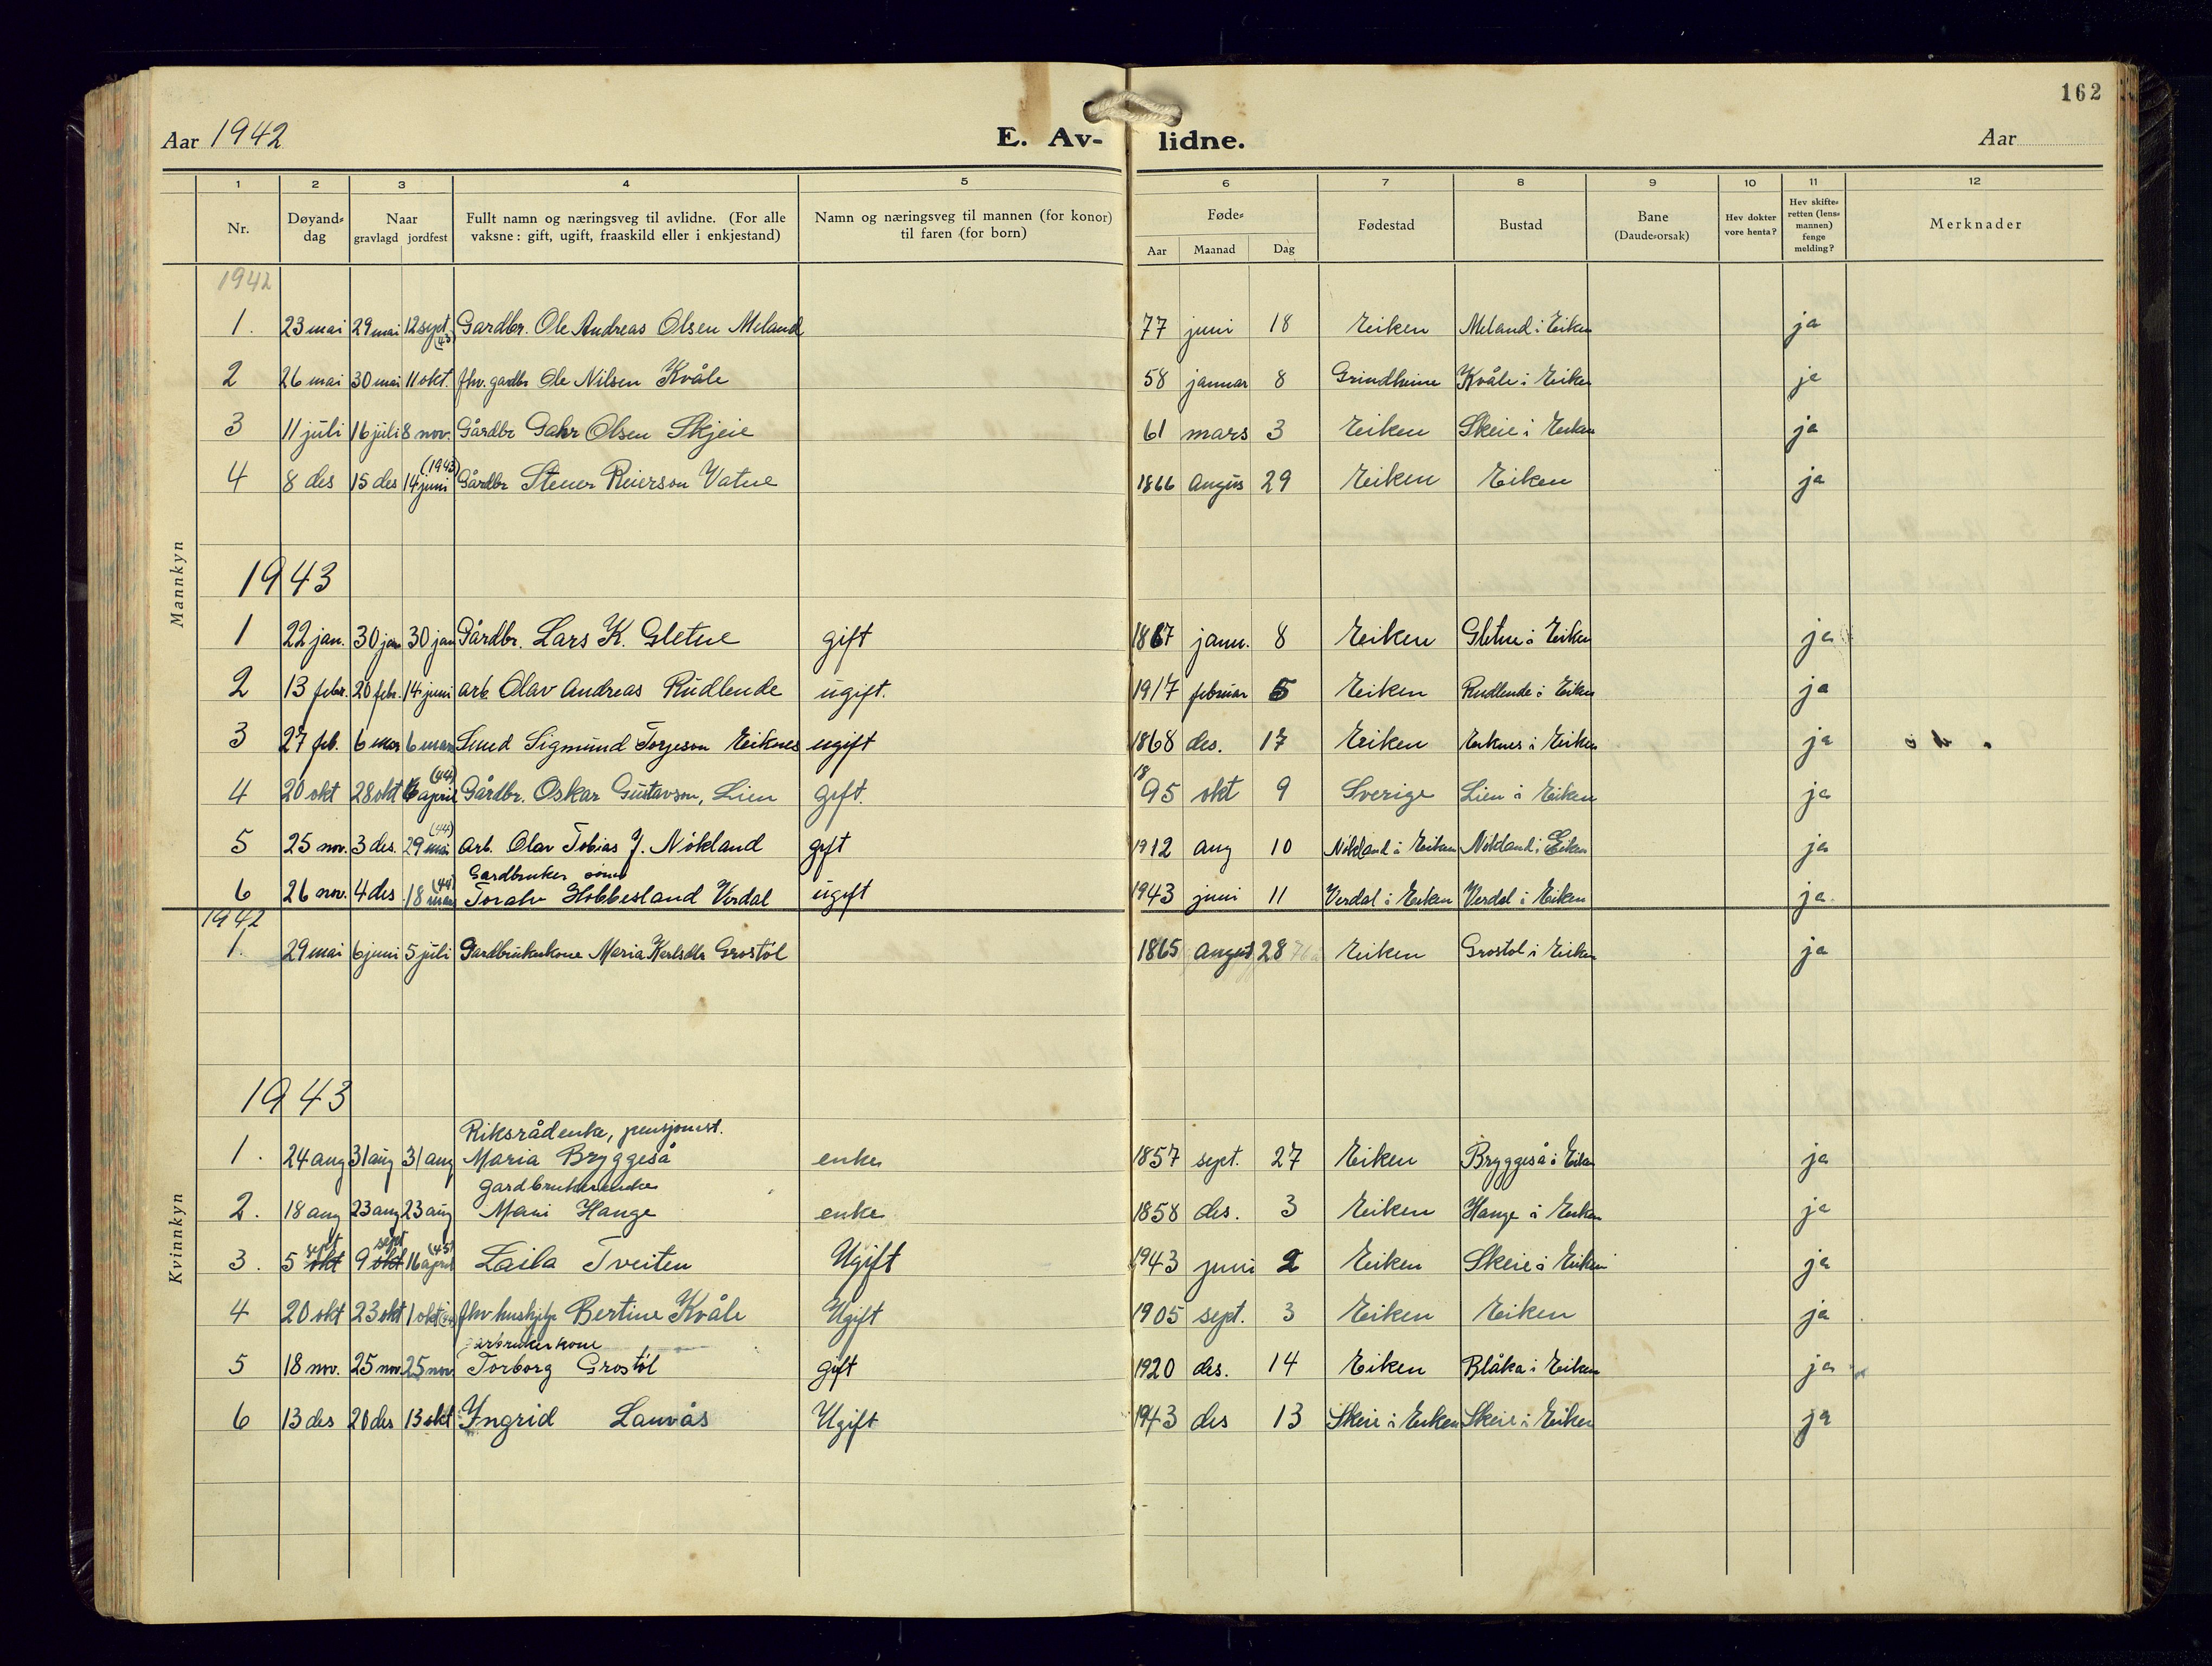 162
Aar 1942 E. Av- lidne. Aar
1 2 3 4 5 6 7 8 9 10 11 12
Nr. Døyand-dag Naar gravlagd jordfest Fullt namn og næringsveg til avlidne. (For alle vaksne: gift, ugift, fraaskild eller i enkjestand) Namn og næringsveg til mannen (for konor) til faren (for born) Føde- Aar Maanad Dag Fødestad Bustad Bane (Daude-orsak) Hev dokter vore henta? Hev skifte-retten (lens-mannen) fenge melding? Merknader
Mannkyn
1942
1. 23 mai 29 mai 12 sept (43) Gardbr. Ole Andreas Olsen Meland 77 juni 18 Eiken Meland i Eiken ja
2 26 mai 30 mai 11 okt. fhv. gardbr Ole Nilsen Kvåle 58 januar 8 Grindheim Kvåle i Eiken ja
3 11 juli 16 juli 8 nov. Gårdbr Gahr Olsen Skjeie 61 mars 3 Eiken Skeie i Eiken ja
4 8 des 15 des 14 juni (1943) Gårdbr Stener Reierson Vatne 1866 Augus 29 Eiken Eiken ja
1943
1 22 jan. 30 jan 30 jan Gårdbr. Lars K. Gletne gift 1867 janu. 8 Eiken Gletne i Eiken ja
2 13 febr. 20 feb. 14 juni arb. Olav Andreas Rudlende ugift. 1917 februar 5 Eiken Rudlende i Eiken ja
3 27 feb. 6 mar 6 mars Smed Sigmund Torjeson Eiknes ugift 1868 des. 17 Eiken Eiknes i Eiken ja
4 20 okt 28 okt 16 april (44) Gårdbr. Oskar Gustavson, Lien gift. 1895 okt 9 Sverige Lien i Eiken ja
5 25 nov. 3 des. 29 mai (44) Arb. Olav Tobias J. Nökland gift 1912 aug 10 Nökland i Eiken Nökland i Eiken ja
Gardbruker sönn
6 26 nov. 4 des 18 mars (44) Toralv Hobbesland Verdal ugift 1943 juni 11 Verdal i Eiken Verdal i Eiken ja.
Kvinnkyn
1942
1. 29 mai 6 juni 5 juli Gardbrukerkone Maria Karlsdtr Grostöl 1865 August 28 76 Eiken Grostol i Eiken ja
1943
Riksrådenke, pensjonist.
1. 24 aug 31 aug 31 aug Maria Bryggeså enke 1857 sept. 27 Eiken Bryggeså i Eiken ja
Gardbrukerenke
2. 18 aug 23 aug 23 aug Mari Hauge enke 1858 des. 3 Eiken Hauge i Eiken ja
3. 5 okt sept 9 okt sept 16 april (45) Laila Tveiten Ugift 1943 juni 2 Eiken Skeie i Eiken ja
4 20 okt 23 okt 1 okt (44) fhv hushjelp Bertine Kvåle Ugift 1905 sept. 3 Eiken Eiken ja
Garbrukerkone
5 18 nov. 25 nov. 25 nov Torborg Grostöl gift 1920 des. 14 Eiken Blåka i Eiken ja
6 13 des 20 des 13 okt Yngrid Lauvås Ugift 1943 des 13 Skeie i Eiken Skeie i Eiken ja